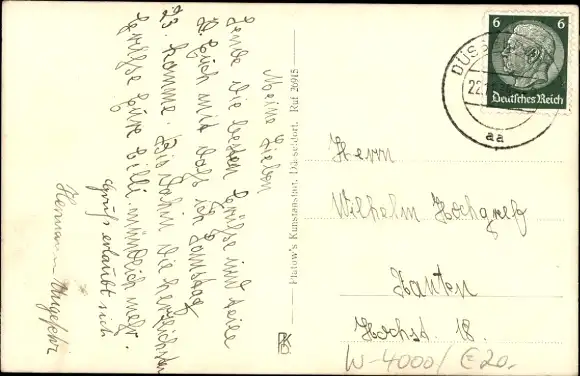 Meine Lieben
Sende die besten Grüße und teile
Euch mit daß ich Samstag
23. komme. Bis dahin die herzlichsten
Grüße Eure Cilli. mündlich mehr.
Gruß erlaubt sich
Hermann
Flatow's Kunstanstalt, Düsseldorf. Ruf 26915
6 6
Deutsches Reich
DÜSS
22.
aa
Herrn
Wilhelm Hochgreb
Xanten
Hochst. 18.
W-4000/ €20.-